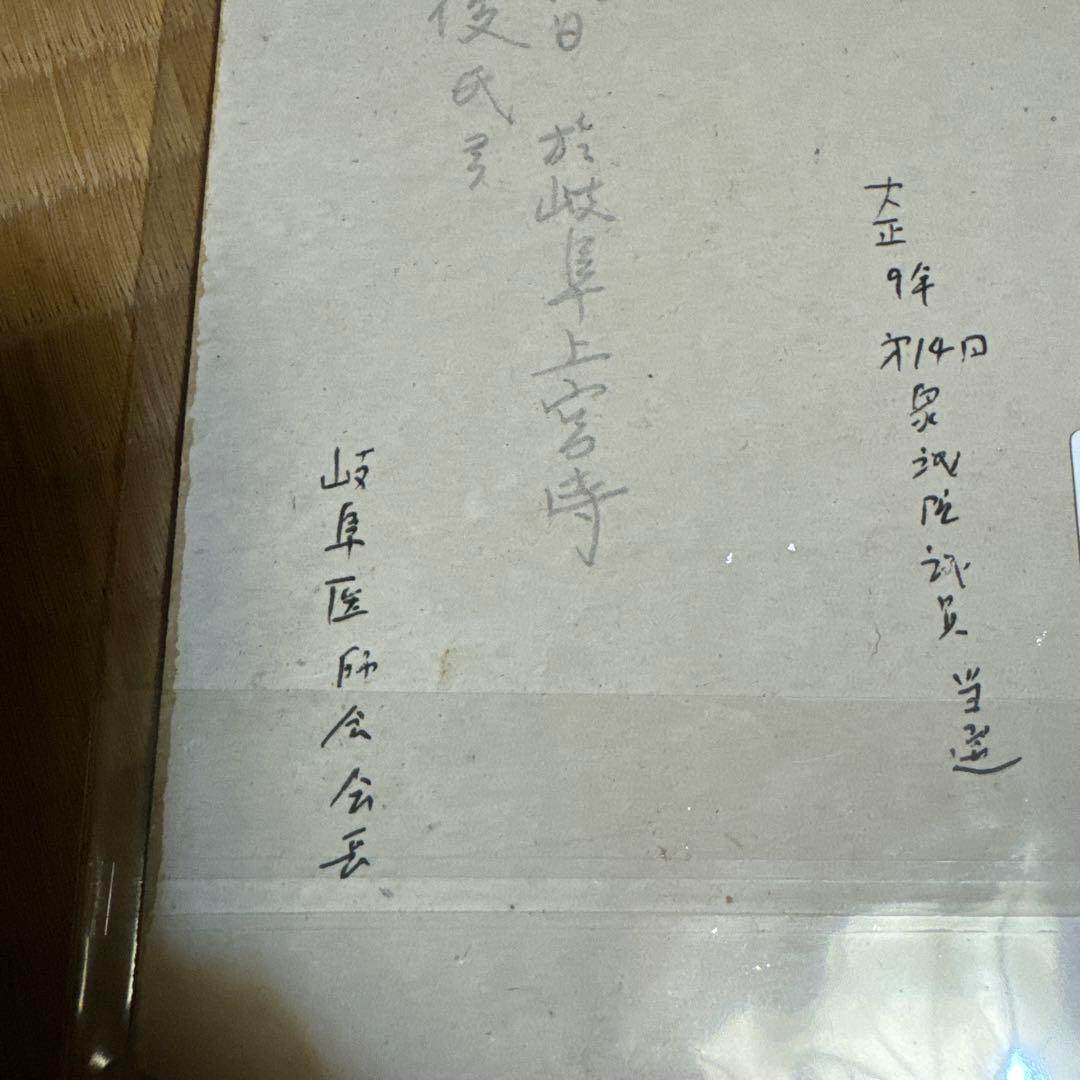 大正9年第14回衆議院議員当選
日 於岐阜上宮寺
俊氏
岐阜医師会会長